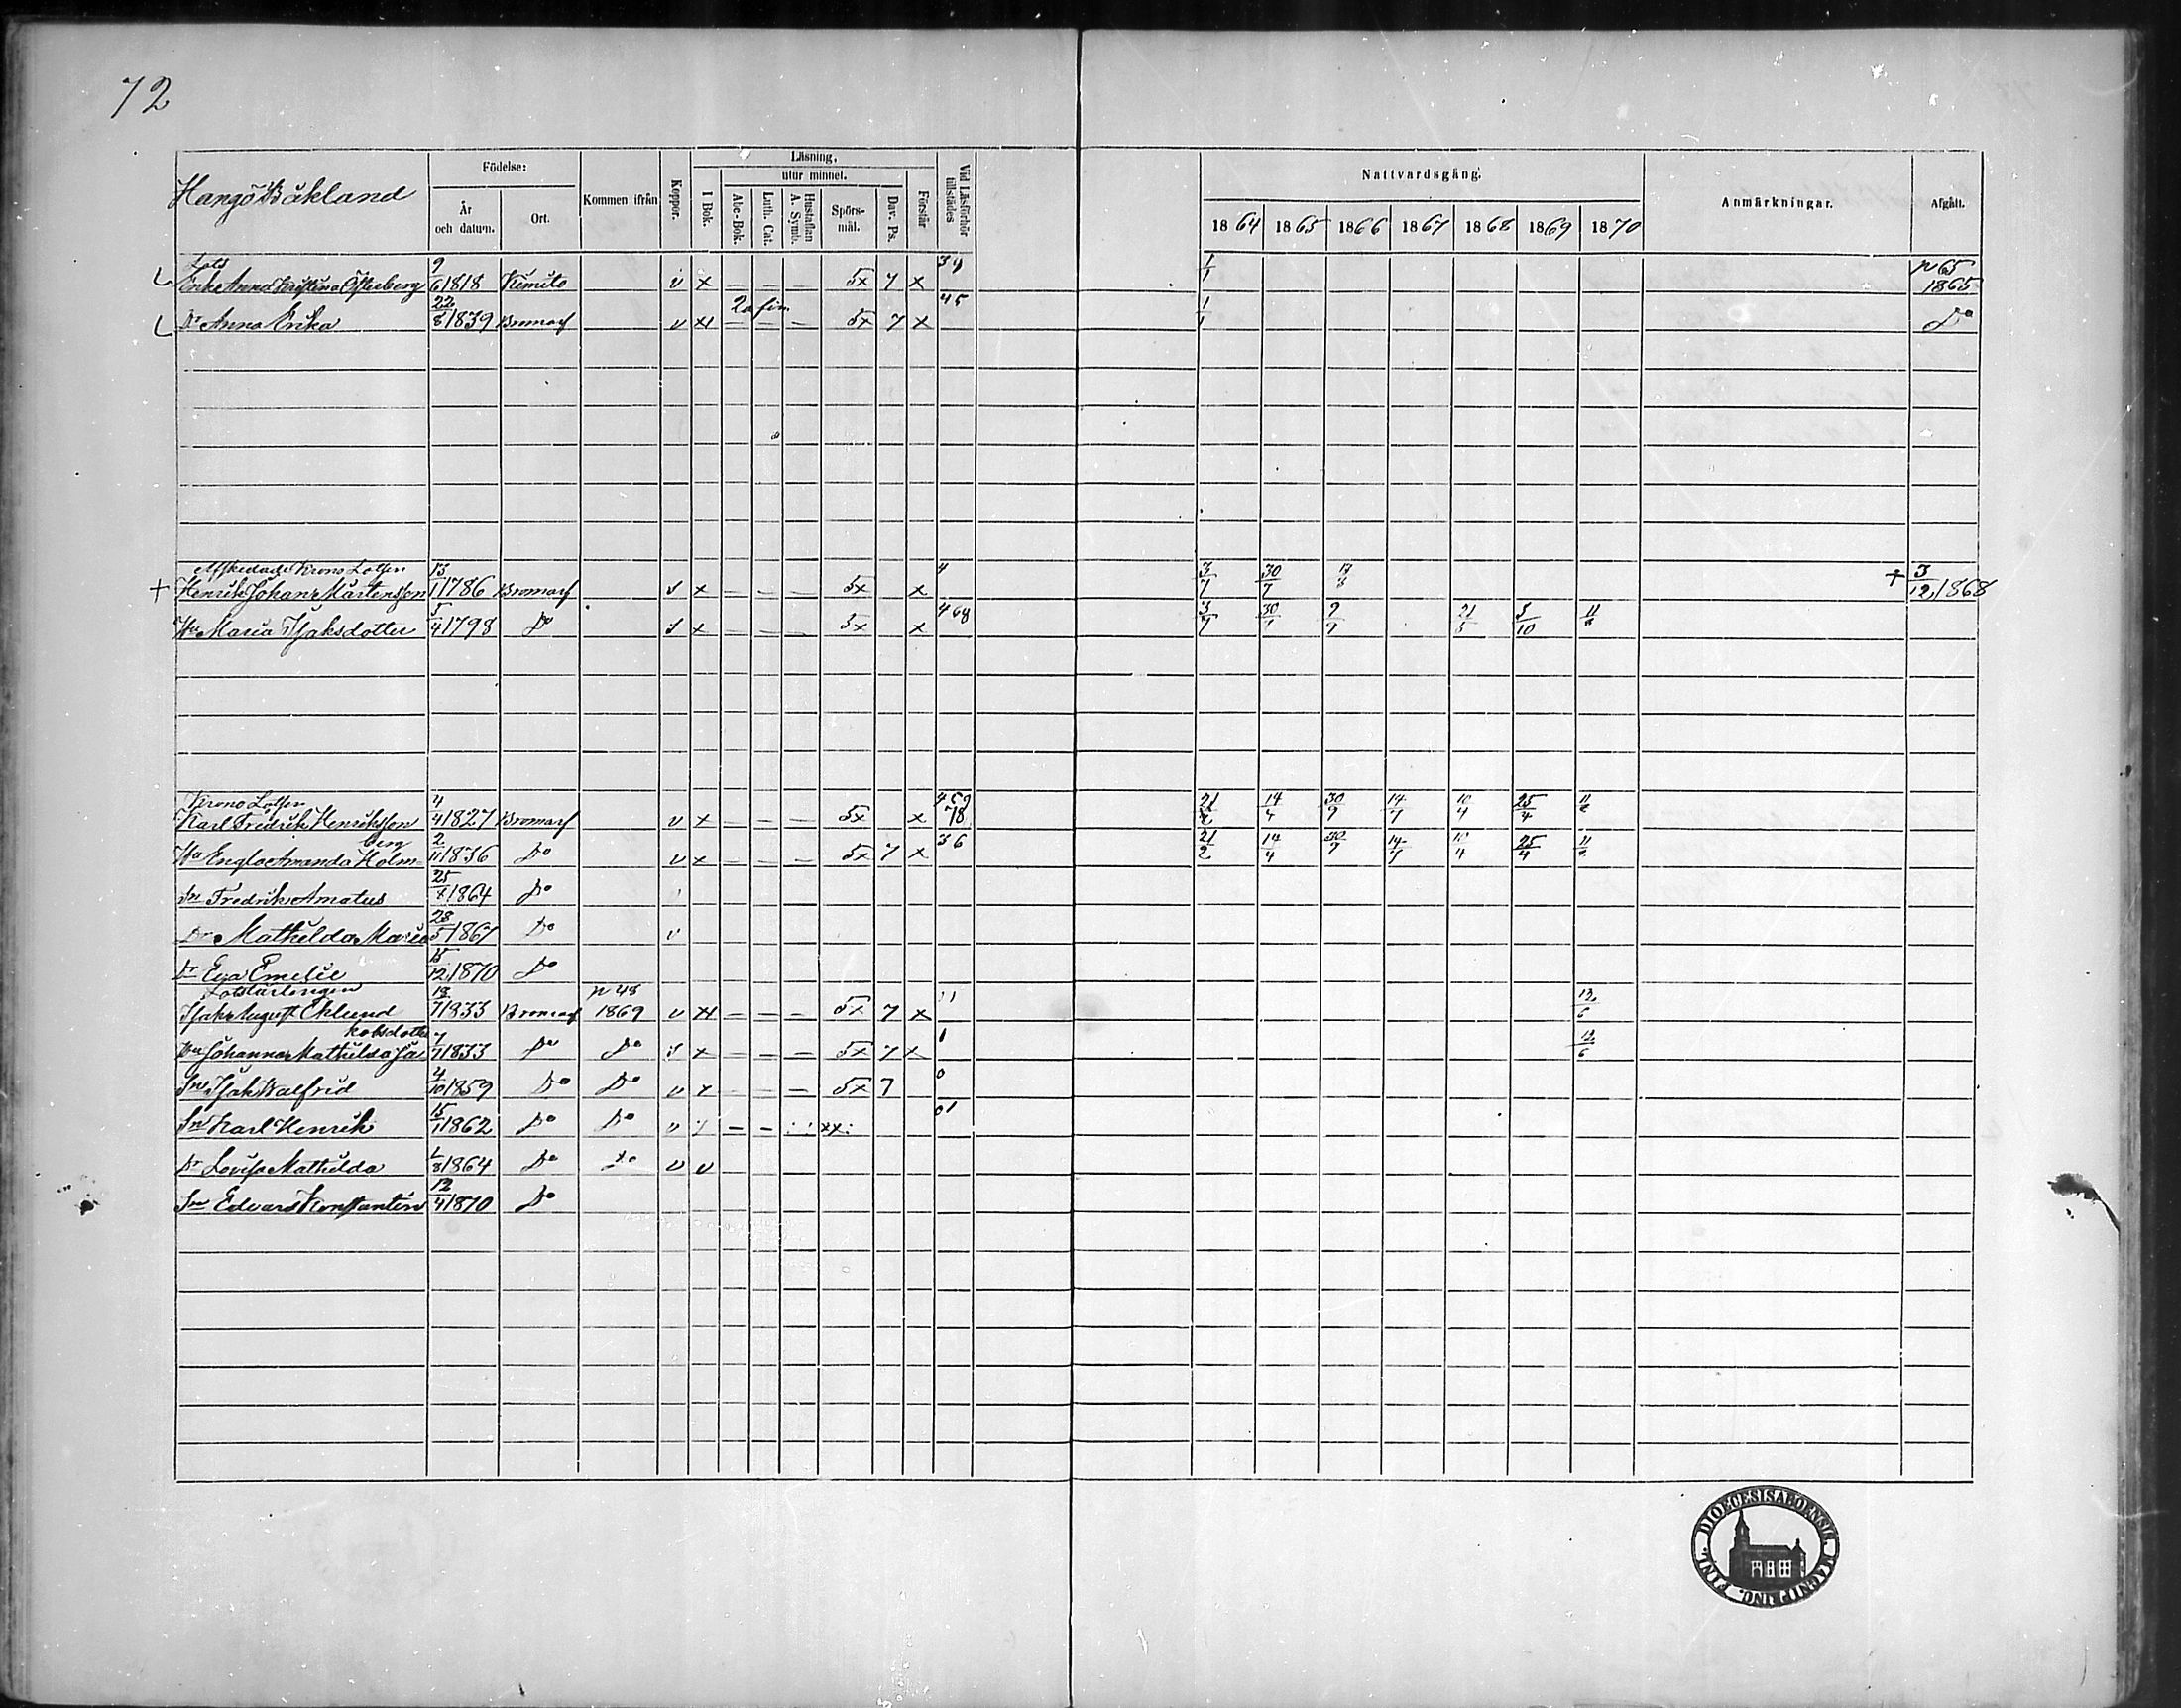 72
Hangö Båkland
Födelse:
År och datum.
Ort.
Kommen ifrån
Koppor.
Läsning.
I Bok.
utur minnet.
Abc-Bok.
Luth. Cat.
Hustaflan A. Symb.
Spörs-mål.
Dav. Ps.
Förstår
Vid Läsförhör tillstädes
Nattvardsgång.
1864 1865 1866 1867 1868 1869 1870
Anmärkningar.
Afgått.
Lots
Enka Anna Kristina Österberg 9/6 1818 Kimito v x — — — 5x 7 x 34 1/1 p 65 1865
Dr Anna Erika 22/8 1839 Bromarf v x 2a fin. — — — 5x 7 x 45 1/1 Do
Afskedade Krono Lotsen
+ Henrik Johan Mårtensson 13/1 1786 Bromarf s x — — — 5x x 4 3/7 30/7 + 3/12 1868
Hu Maria Isaksdotter 5/4 1798 Do s x — — — 5x x 4 68 3/7 30/7 9/9 21/5 3/10
Krono Lotsen
Karl Fredrik Henriksson 4/4 1827 Bromarf v x — — — 5x x 459 78 21/2 14/4 30/9 14/7 10/4 25/4
Hu Engla Amanda Holmberg 2/11 1836 Do v x — — — 5x 7 x 36 21/2 14/4 30/9 14/7 10/4 25/4
Sn Fredrik Amatus 25/8 1864 Do
Dr Mathilda Maria 28/5 1867 Do v
Dr Eva Emelie 15/12 1870 Do
Lotslärlingen
Isak August Eklund 18/7 1833 Bromarf p 48 1869 v x — — — 5x 7 x 11 12/6
Hu Johanna Mathilda Jakobsdotter 7/7 1833 Do Do s x — — — 5x 7 x 1 12/6
Sn Isak Walfrid 4/10 1859 Do Do v x — — — 5x 7 0
Sn Karl Henrik 15/1 1862 Do Do v — — xx 01
Dr Lovisa Mathilda 1/8 1864 Do Do v v
Sn Edvard Konstantin 12/4 1870 Do
DIOECESIS ABOENSIS MAGNI PRINC. FINL.